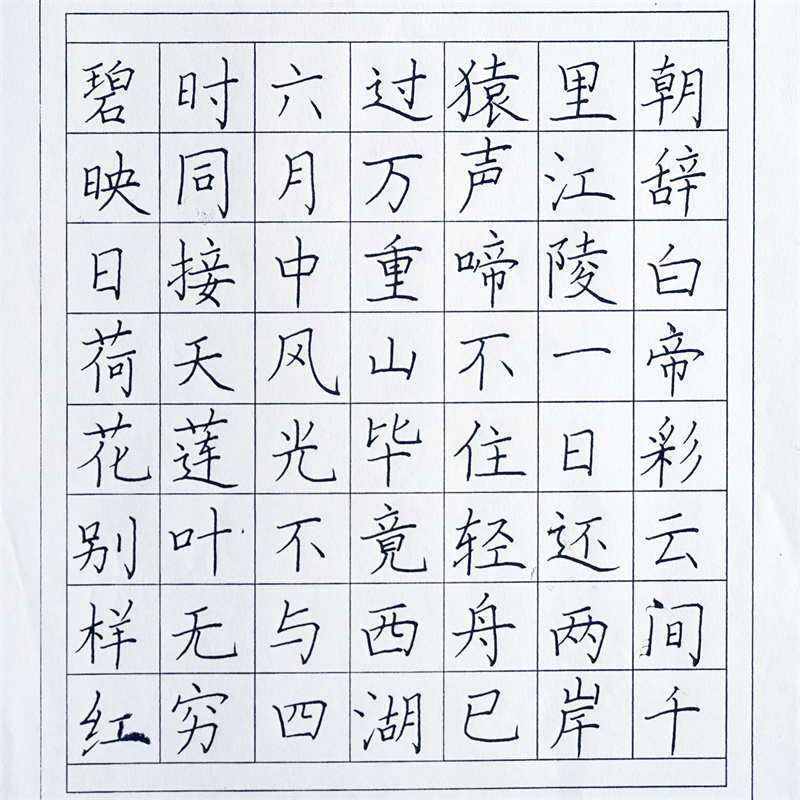 朝辞白帝彩云间千
里江陵一日还两岸
猿声啼不住轻舟已
过万重山毕竟西湖
六月中风光不与四
时同接天莲叶无穷
碧映日荷花别样红